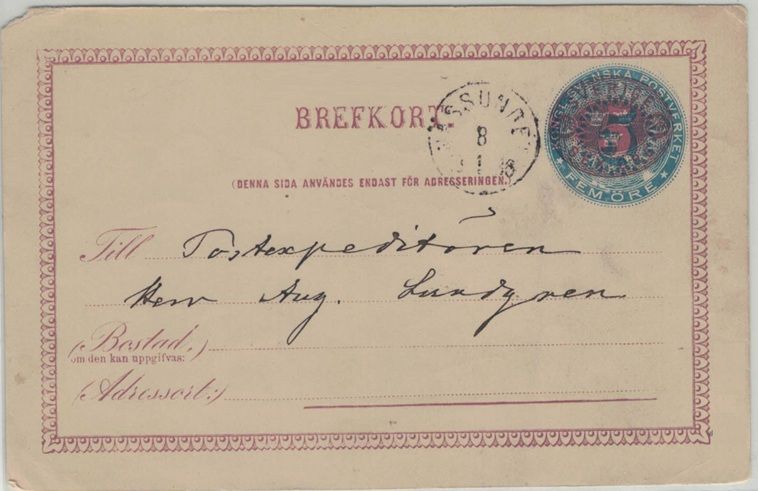 BREFKORT.
8
1
KONGL. SVENSKA POSTVERKET
SVERIGE
5
FEM ÖRE
(DENNA SIDA ANVÄNDES ENDAST FÖR ADRESSERINGEN.)
Till Postexpeditören
Herr Aug. Lundgren
(Bostad,)
om den kan uppgifvas:
(Adressort:)